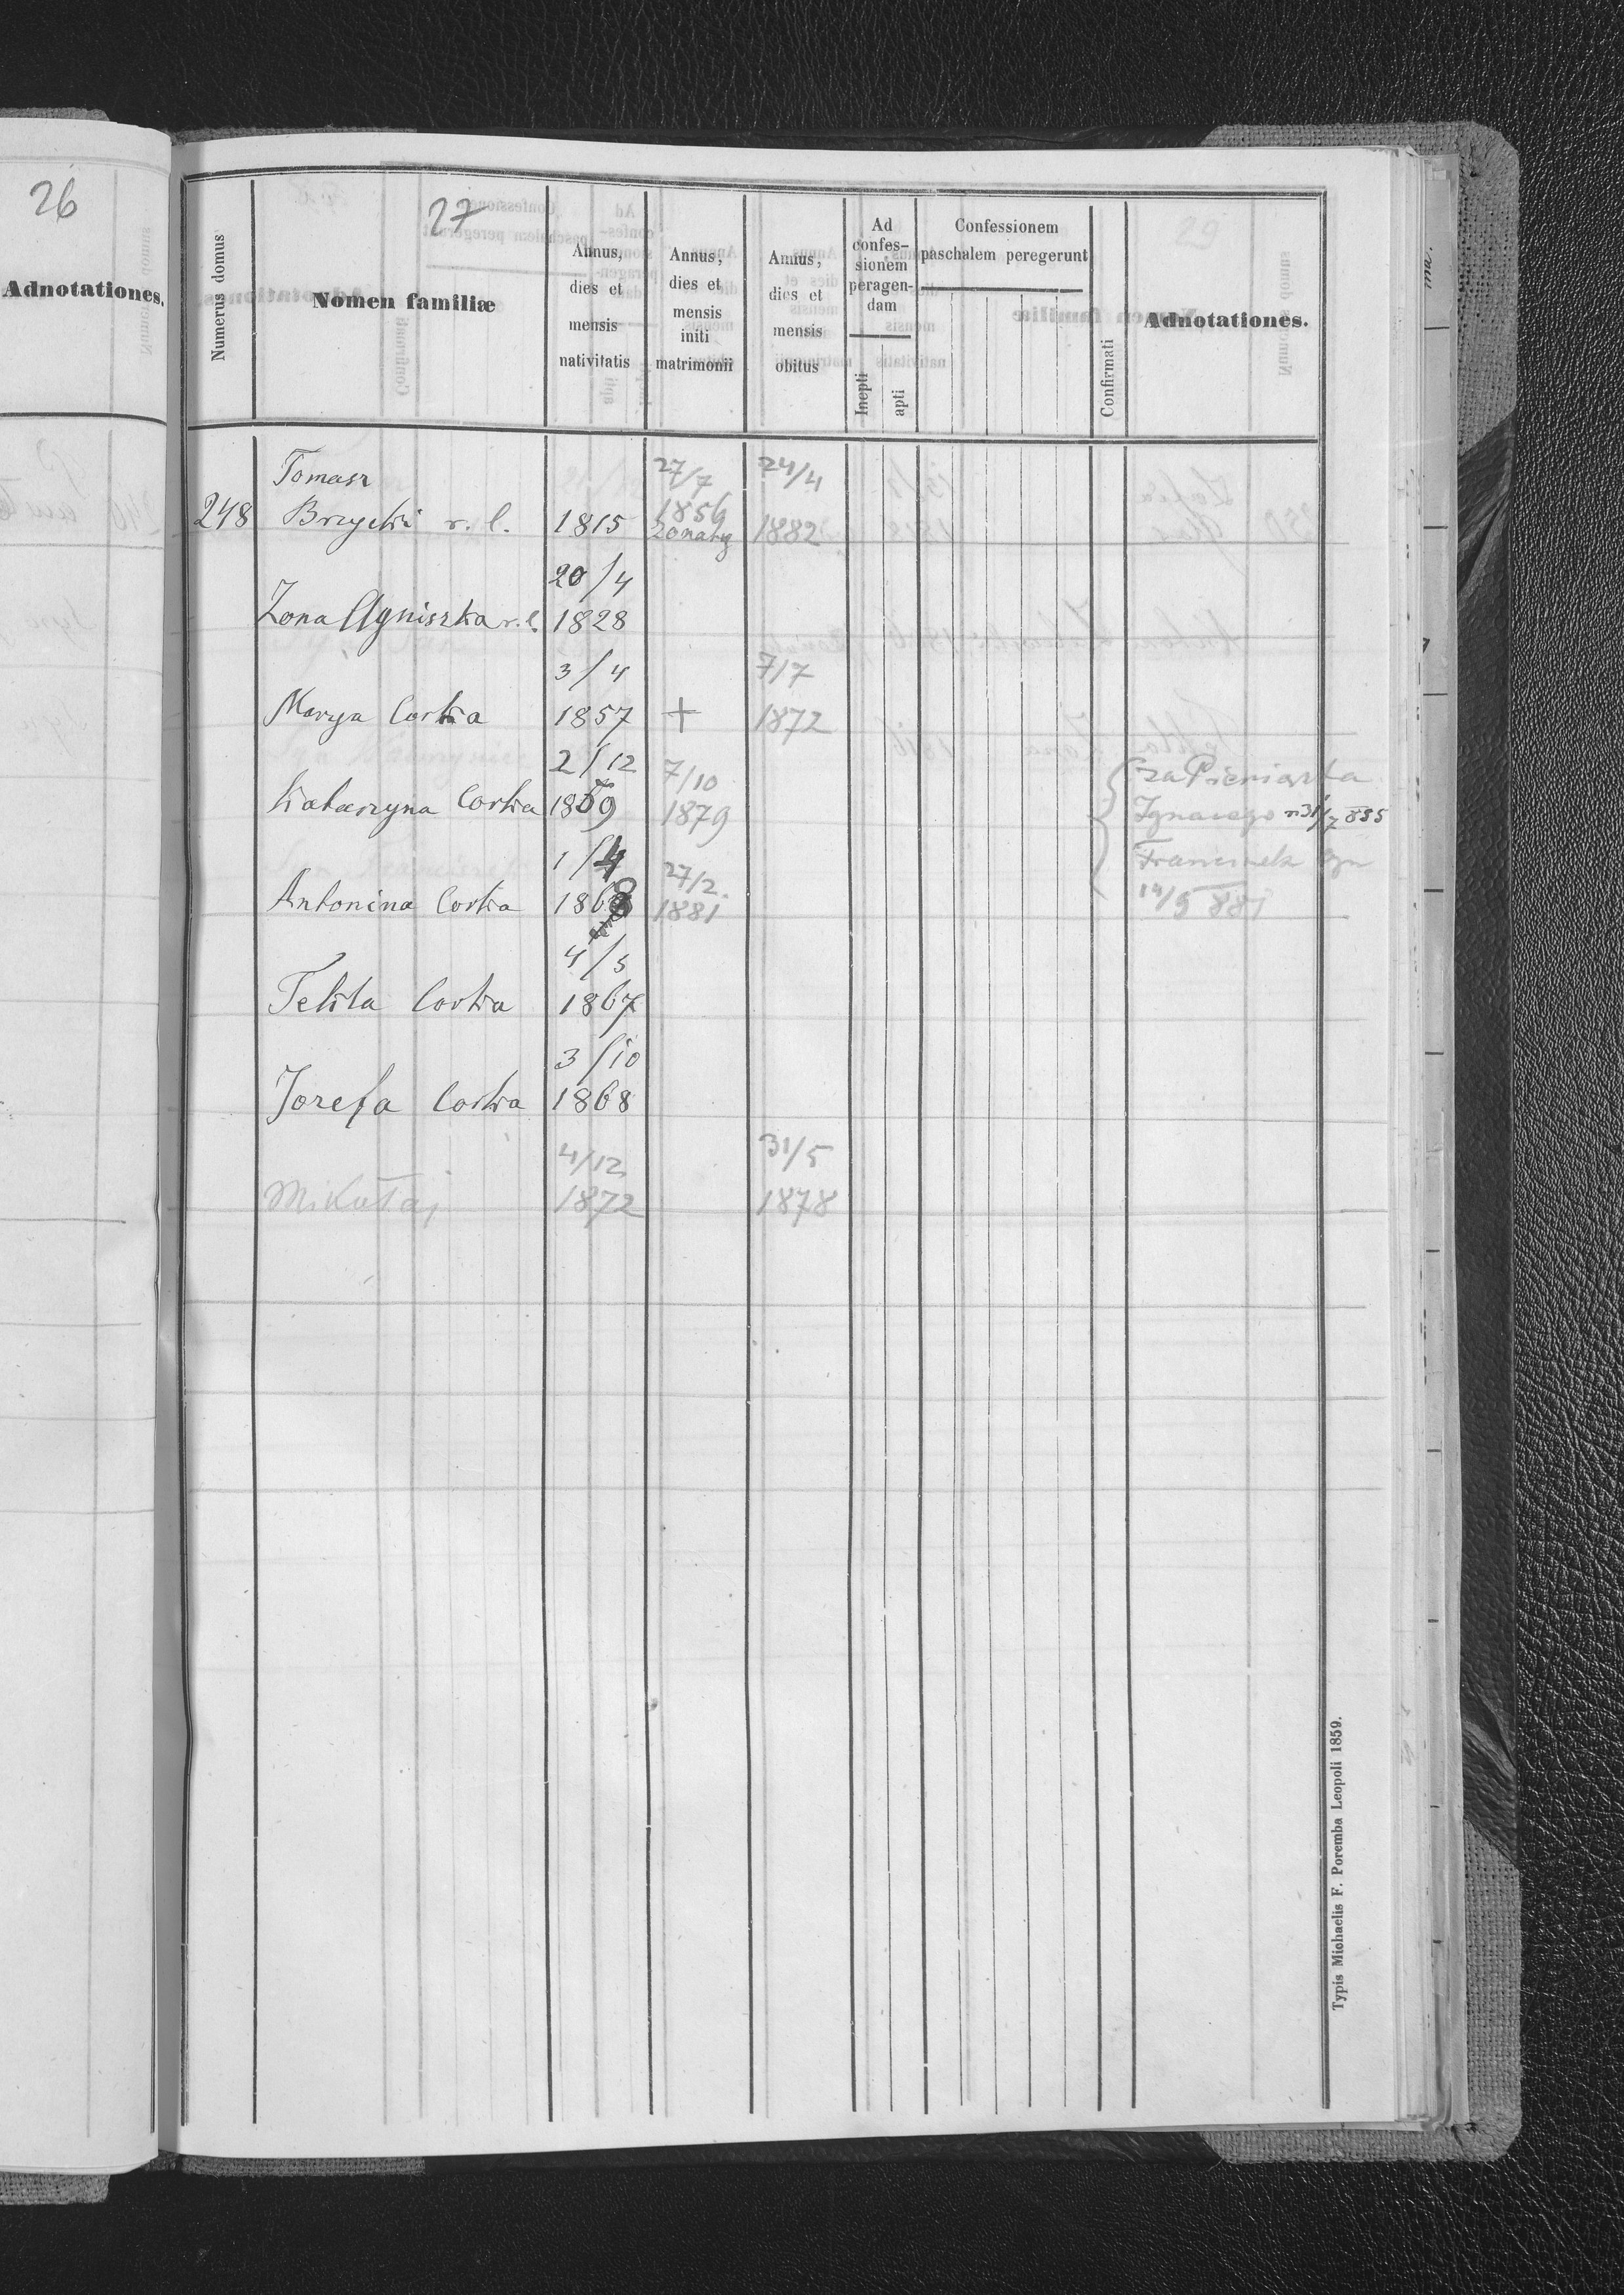 26
Adnotationes.
27
Numerus domus
Nomen familiæ
Annus,
dies et
mensis
nativitatis
Annus,
dies et
mensis
initi
matrimonii
Annus,
dies et
mensis
obitus
Ad
confes-
sionem
peragen-
dam
Inepti
apti
Confessionem
paschalem peregerunt
Confirmati
Adnotationes.
Tomasz 27/7 24/4
248 Brzycki r. l. 1815 1856 1882
żonaty
20/4
Zona Agniszka r. l. 1828
3/4 7/7
Marya Corka 1857 + 1872
2/12 7/10 za Pieniarka
Katarzyna Corka 1859 1879 Ignacego n 31/7 885
1/4 27/2 Franciszek syn
Antonina Corka 1868 1881 14/9 881
4/5
Tekla Corka 1867
3/10
Jozefa Corka 1868
4/12 31/5
Mikołaj 1872 1878
Typis Michaelis F. Poremba Leopoli 1859.